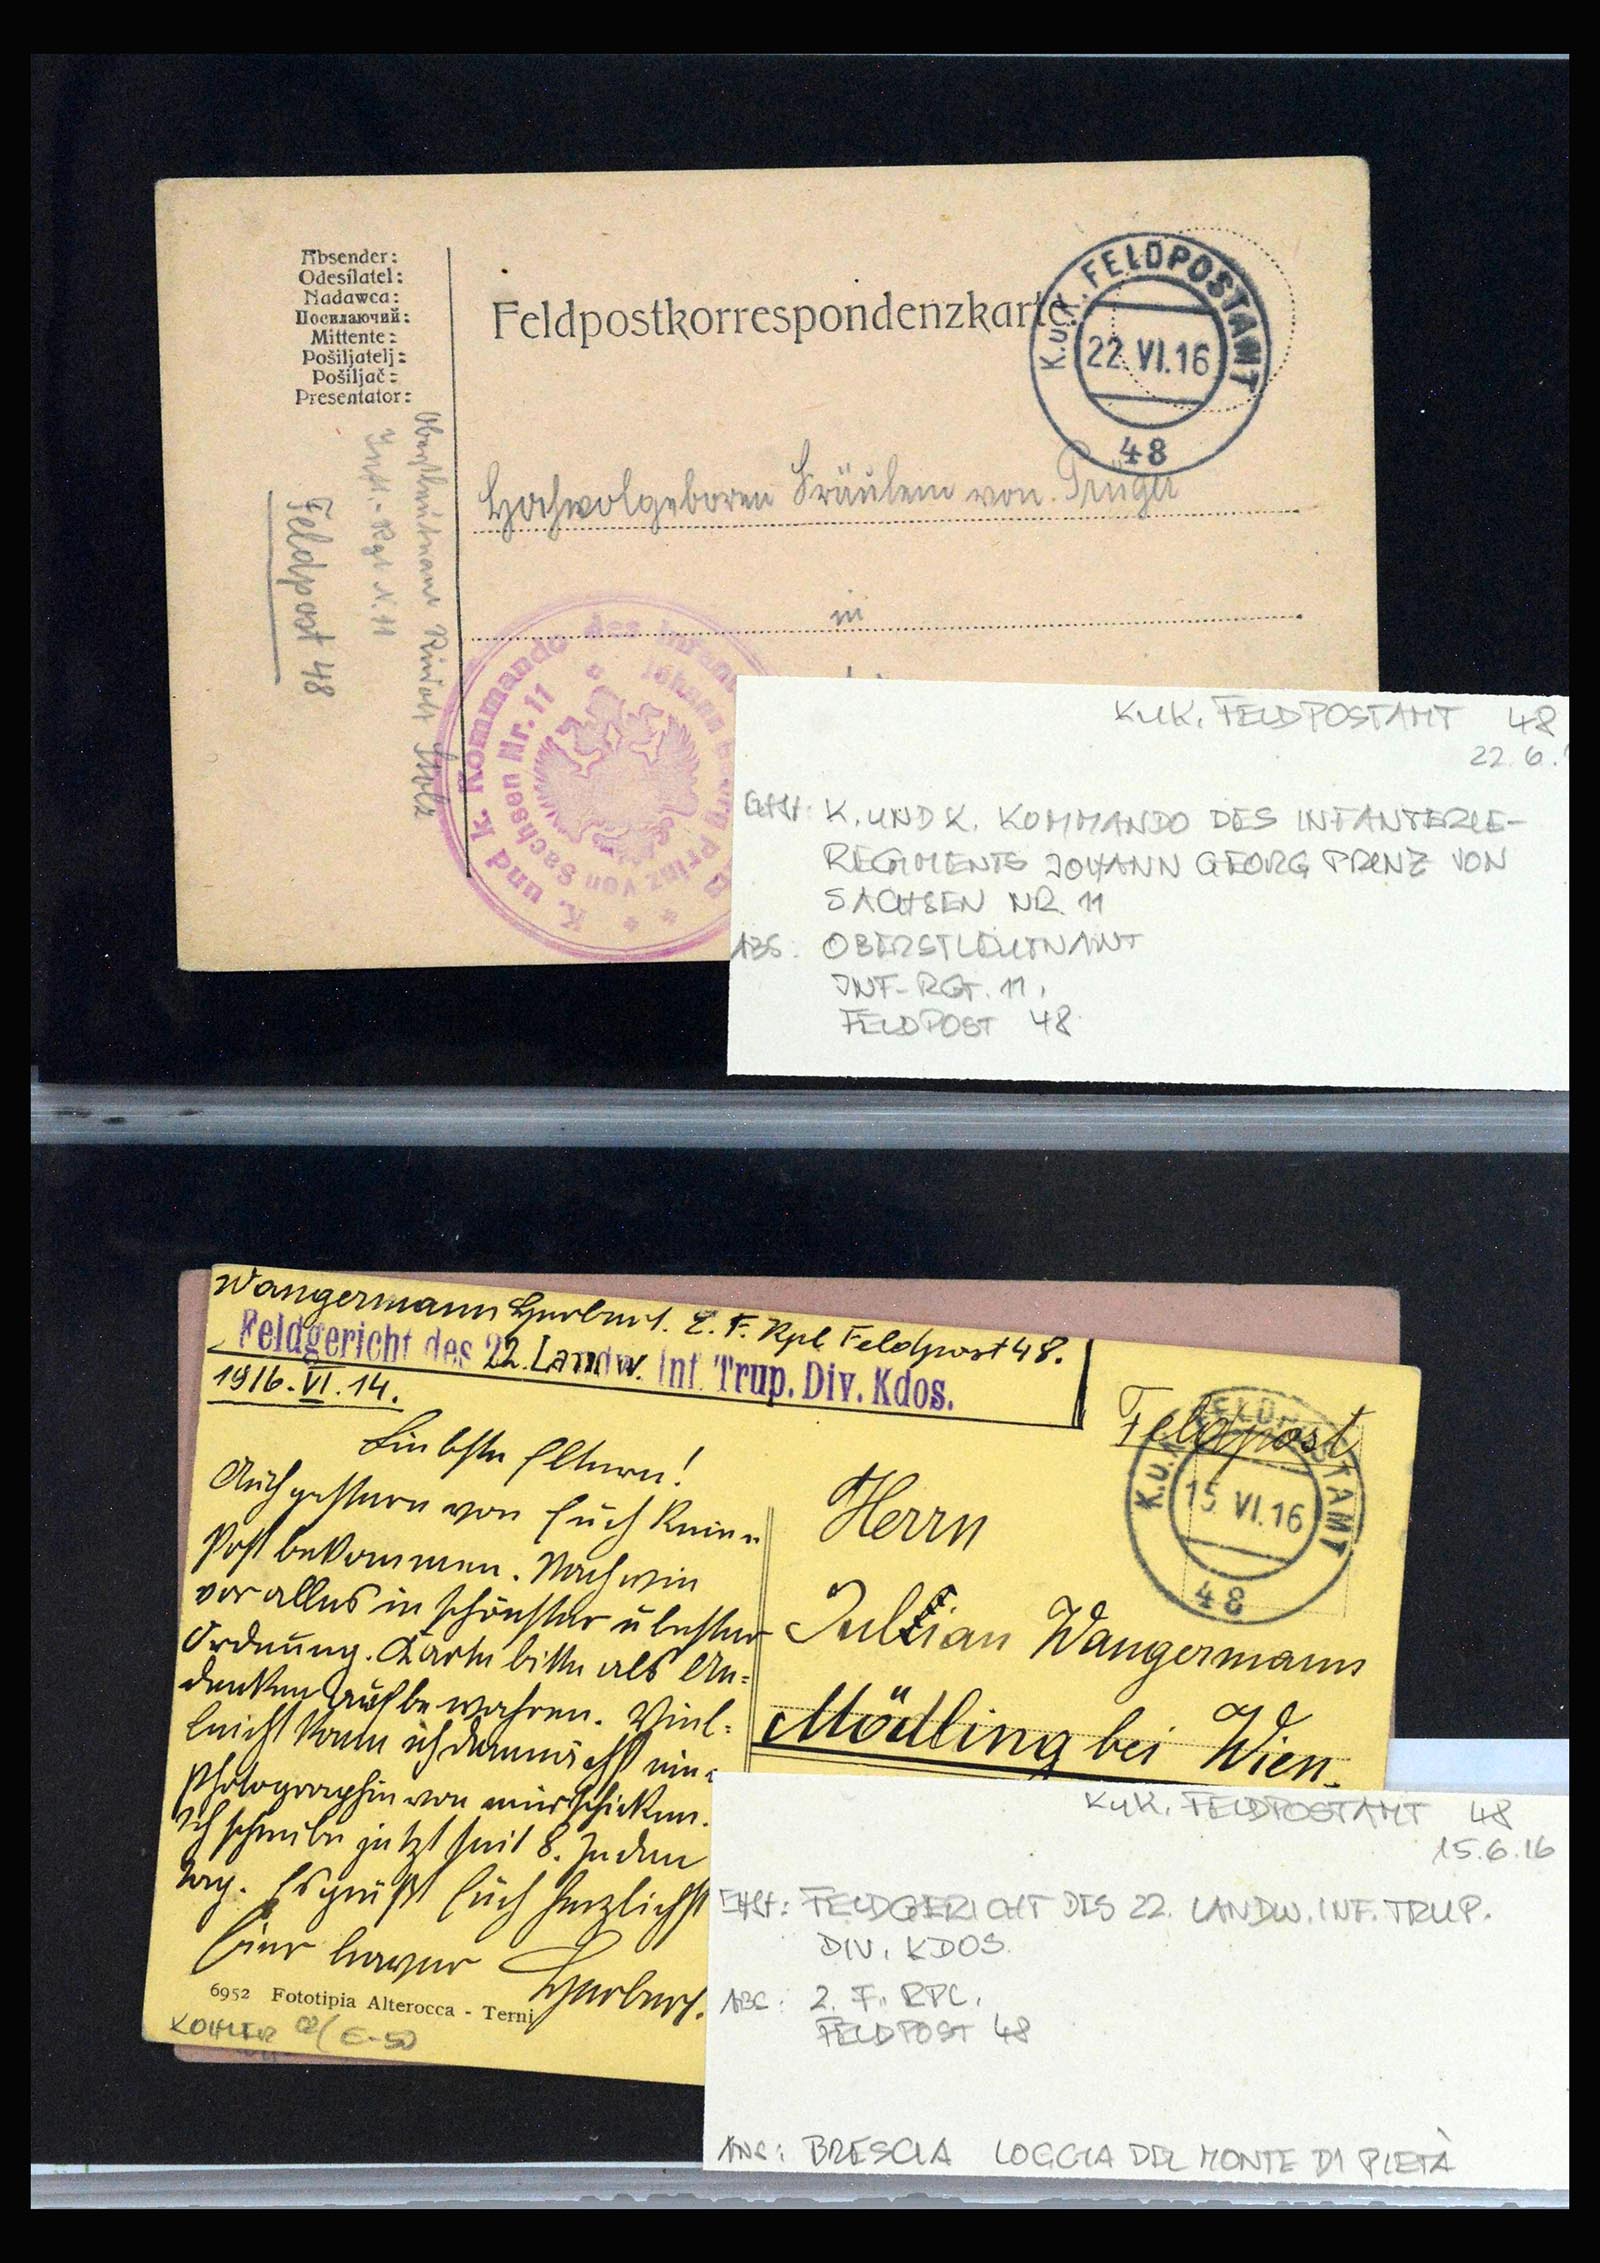 Absender:
Odesílatel:
Nadawca:
Посилаючий:
Mittente:
Pošiljatelj:
Pošiljač:
Presentator:
Feldpostkorrespondenzkarte.
K.u.K. FELDPOSTAMT
22 VI.16
48
Hochwolgeboren Fräulein von
in
Oberstleutnant
Inft.-Rgt N. 11
Feldpost 48
K. und K. Kommando des Infant
Johann Georg Prinz von Sachsen Nr. 11
KuK. FELDPOSTAMT 48
22.6.
K. UND K. KOMMANDO DES INFANTERIE-
REGIMENTS JOHANN GEORG PRINZ VON
SACHSEN NR. 11
ABS: OBERSTLEUTNANT
INF-RGT. 11,
FELDPOST 48
Wangermann Herbert. E. F. Kpl. Feldpost 48.
Feldgericht des 22. Landw. Inf. Trup. Div. Kdos.
1916.VI.14.
Liebste Eltern!
Auch gestern von Euch keine
Post bekommen. Nach wie
vor alles in schönster u bester
Ordnung. Karte bitte als An=
denken aufbewahren. Viel=
leicht kann ich demnächst eine
Photographie von mir schicken.
Ich schreibe jetzt seit 8. jeden
Tag. Es grüßt Euch herzlichst
Euer braver Herbert.
6952 Fototipia Alterocca - Terni
KOHLER
Feldpost
K.u.K. FELDPOSTAMT
15 VI.16
48
Herrn
Julian Wangermann
Mödling bei Wien.
KuK. FELDPOSTAMT 48
15.6.16
FELDGERICHT DES 22. LANDW. INF. TRUP.
DIV. KDOS.
ABS: 2. F. RPL.
FELDPOST 48
ANS: BRESCIA LOGGIA DEL MONTE DI PIETÀ